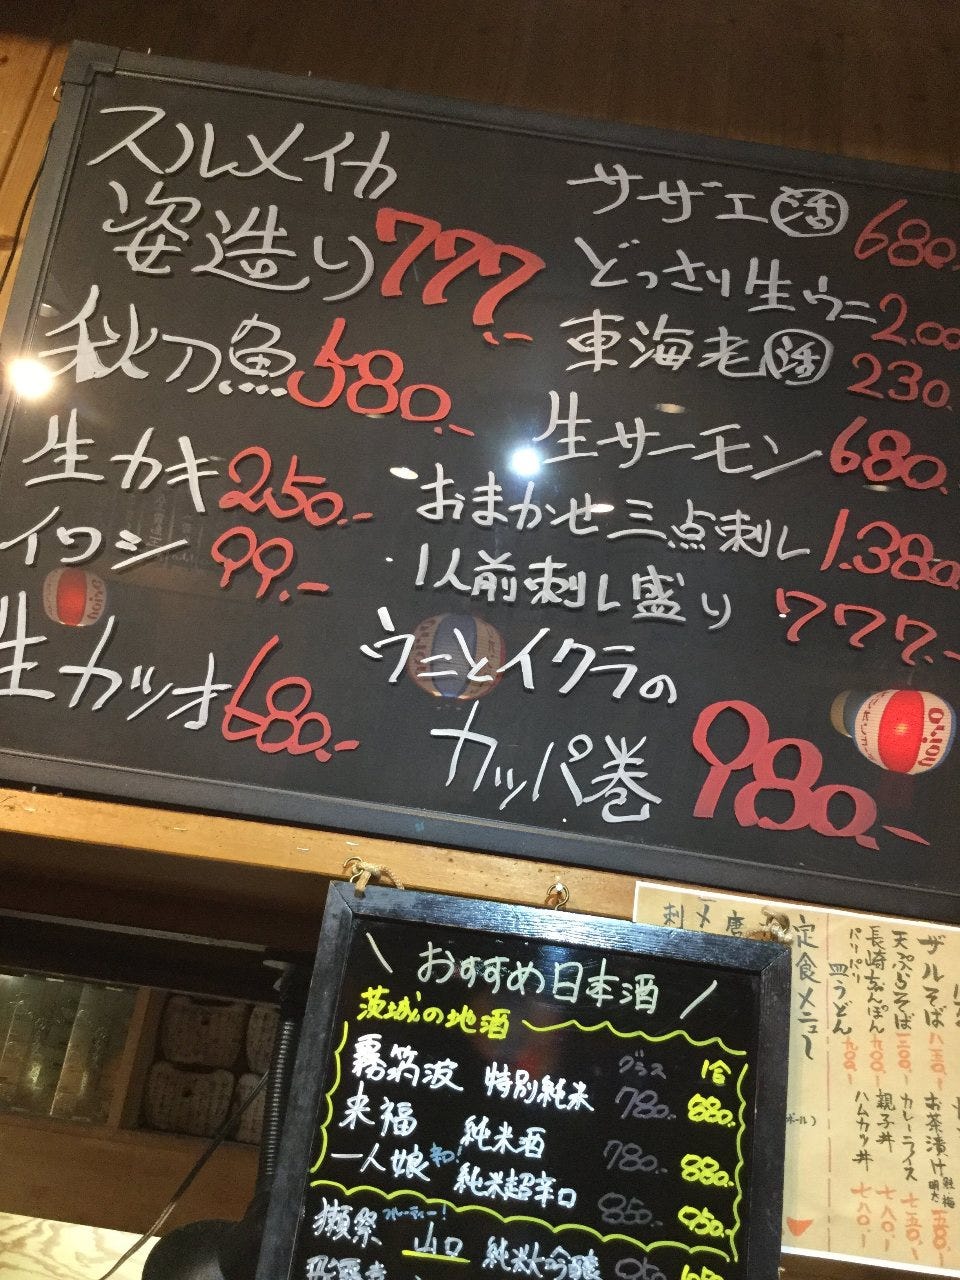 スルメイカ
姿造り 777.-
秋刀魚 580.-
生カキ 250.-
イワシ 99.-
生カツオ 680.-
サザエ 活 680.
どっさり生ウニ 2.00
東海老 活 230.
生サーモン 680.
おまかせ三点刺し 1.380
・1人前刺し盛り 777.-
ウニとイクラの
カッパ巻 980.-
\ おすすめ日本酒 /
茨城の地酒
グラス 1合
霧筑波 特別純米 780.- 880.-
来福 純米酒 780.- 880.-
一人娘 辛口! 純米超辛口 850.- 950.-
獺祭 フルーティー! 山口 純米大吟醸
定食メニュー
ザルそば 850-
天ぷらそば
長崎ちゃんぽん 900-
パリパリ
皿うどん 900-
お茶漬け 鮭 梅
カレーライス 750-
親子丼 780-
ハムカツ丼 780-
orion